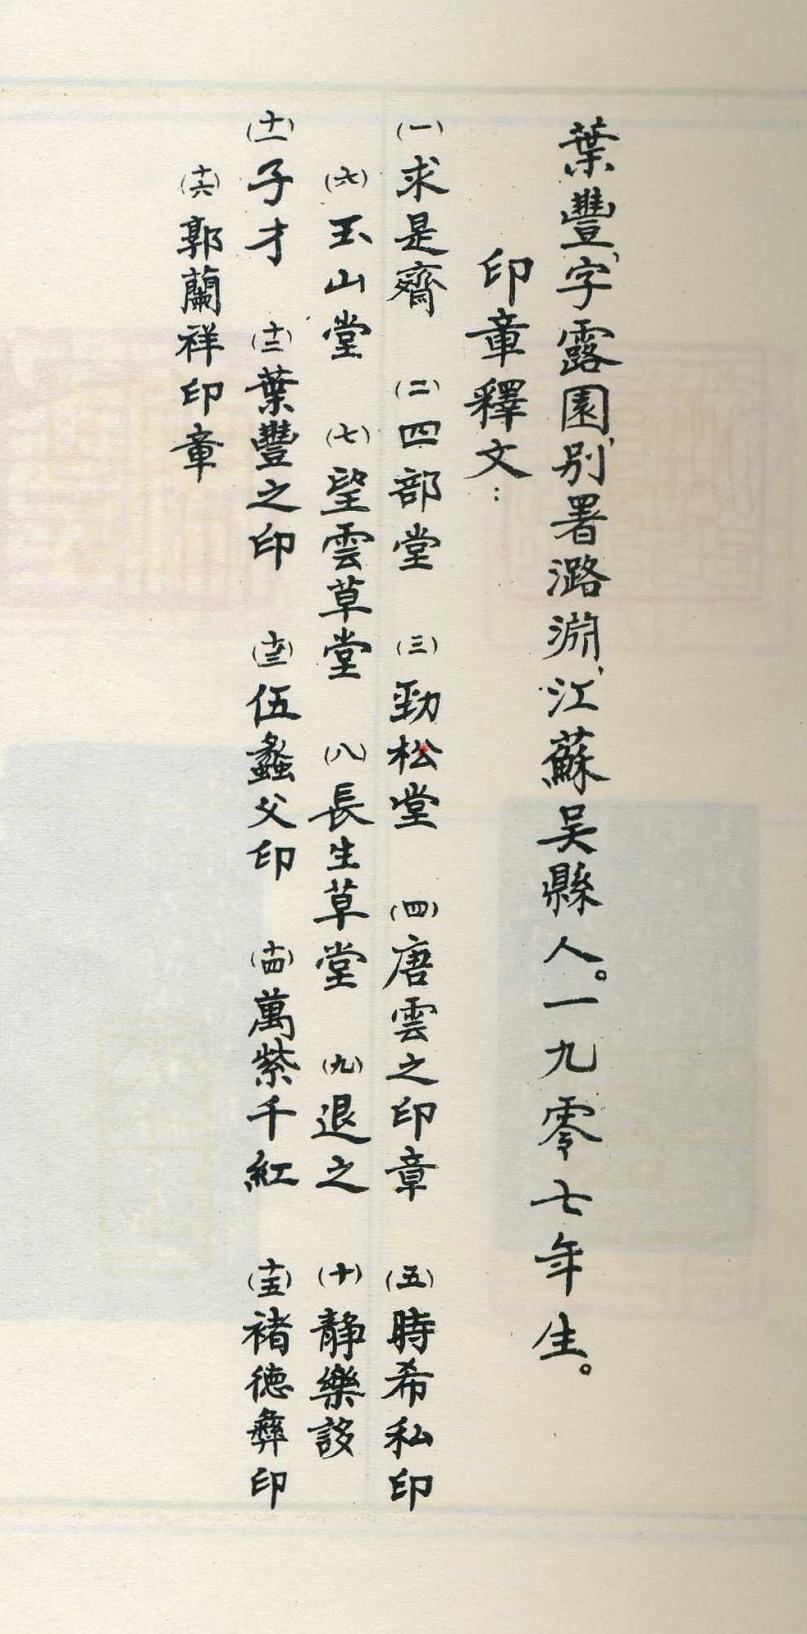 葉豐、字露園、别署潞淵、江蘇吴縣人。一九零七年生。
印章釋文：
(一)求是齋 (二)四部堂 (三)勁松堂 (四)唐雲之印章 (五)時希私印
(六)玉山堂 (七)望雲草堂 (八)長生草堂 (九)退之 (十)靜樂誃
(十一)子才 (十二)葉豐之印 (十三)伍蠡父印 (十四)萬紫千紅 (十五)褚德彝印
(十六)郭蘭祥印章